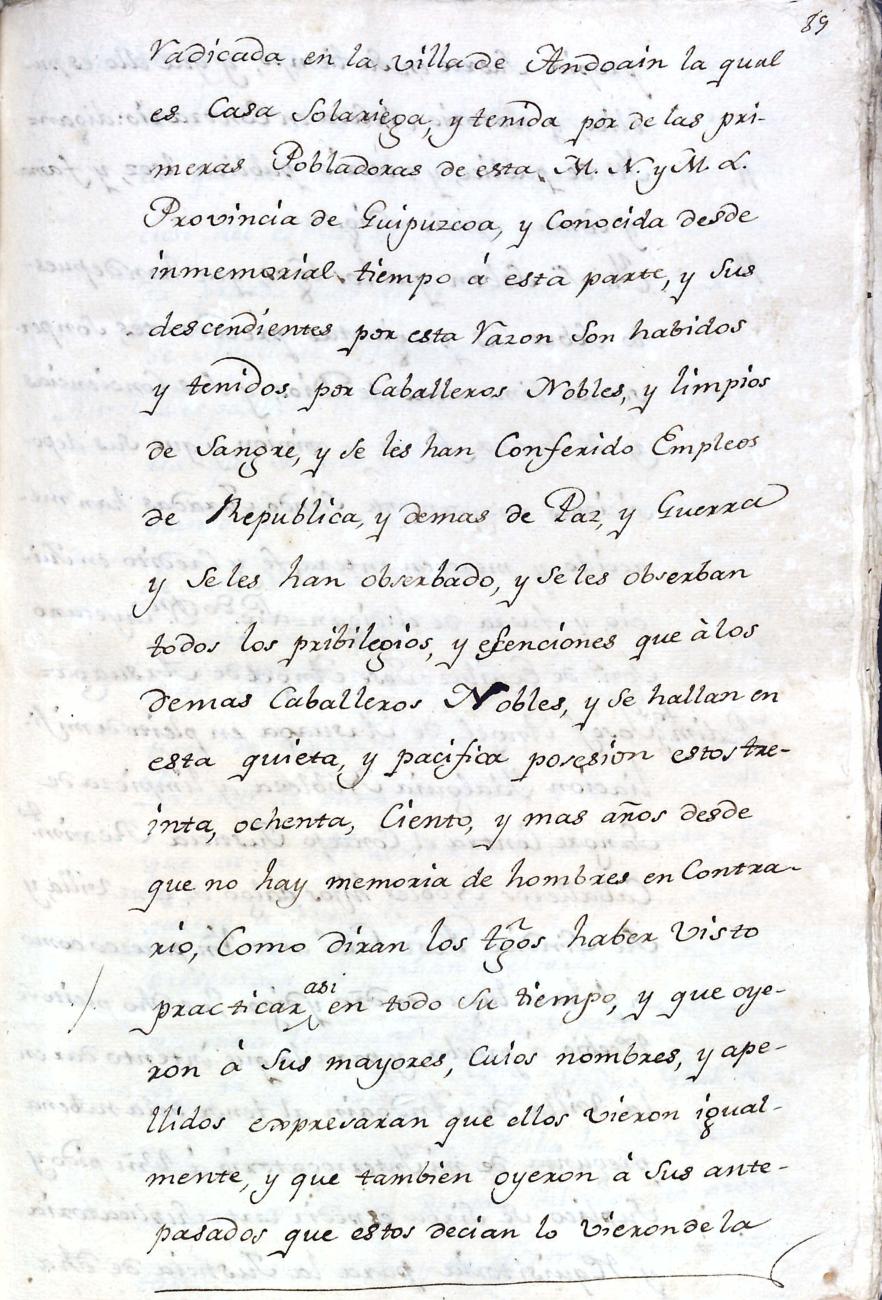 89
radicada en la villa de Andoain la qual
es Casa Solariega, y tenida por de las pri-
meras Pobladoras de esta M. N. y M. L.
Provincia de Guipuzcoa, y Conocida desde
inmemorial tiempo á esta parte, y sus
descendientes por esta razon son habidos
y tenidos por Caballeros Nobles, y limpios
de Sangre, y se les han Conferido Empleos
de Republica, y demas de Paz, y Guerra
y se les han obserbado, y se les obserban
todos los pribilegios, y esenciones que à los
demas Caballeros Nobles, y se hallan en
esta quieta, y pacifica posesion estos tre-
inta, ochenta, Ciento, y mas años desde
que no hay memoria de hombres en Contra-
rio, Como diran los tg̃os haber visto
practicar asi en todo su tiempo, y que oye-
ron á sus mayores, Cuios nombres, y ape-
llidos expresaran que ellos vieron igual-
mente, y que tambien oyeron á sus ante-
pasados que estos decian lo vieron de la